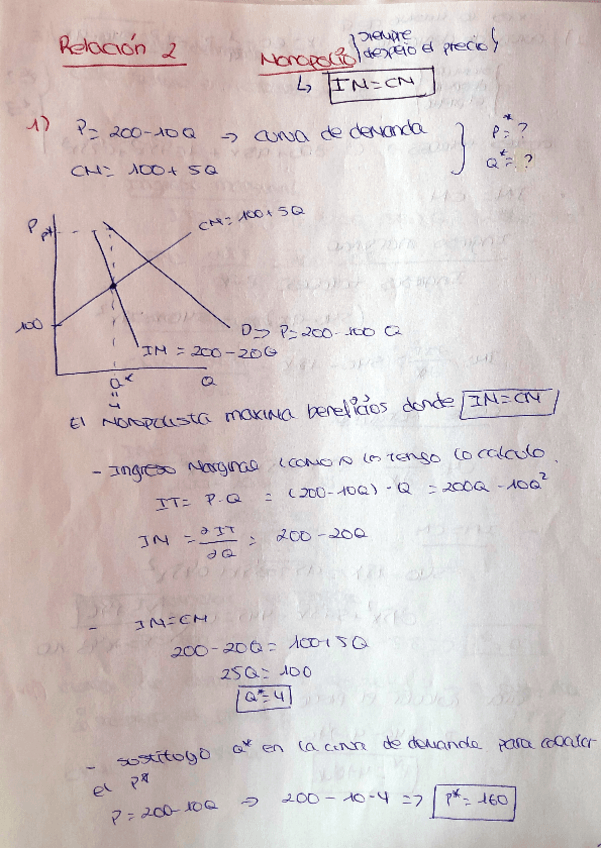 Relación 2
Monopolio } siempre despejo el precio }
↳ IM=CM
1) P= 200-10Q → curva de demanda } P*= ?
CM= 100+5Q } Q*= ?
P
P*
CM=100+5Q
100
D=> P=200-100 Q
IM = 200-20Q
Q* = 4
Q
El Monopolista maximiza beneficios donde IM=CM
- Ingreso Marginal como no lo tengo lo calculo.
IT= P·Q = (200-10Q)·Q = 200Q-10Q²
IM = ∂IT/∂Q = 200-20Q
- IM=CM
200-20Q= 100+5Q
25Q=100
Q*=4
- sustituyo Q* en la curva de demanda para calcular
el P*
P=200-10Q => 200-10·4 => P*=160